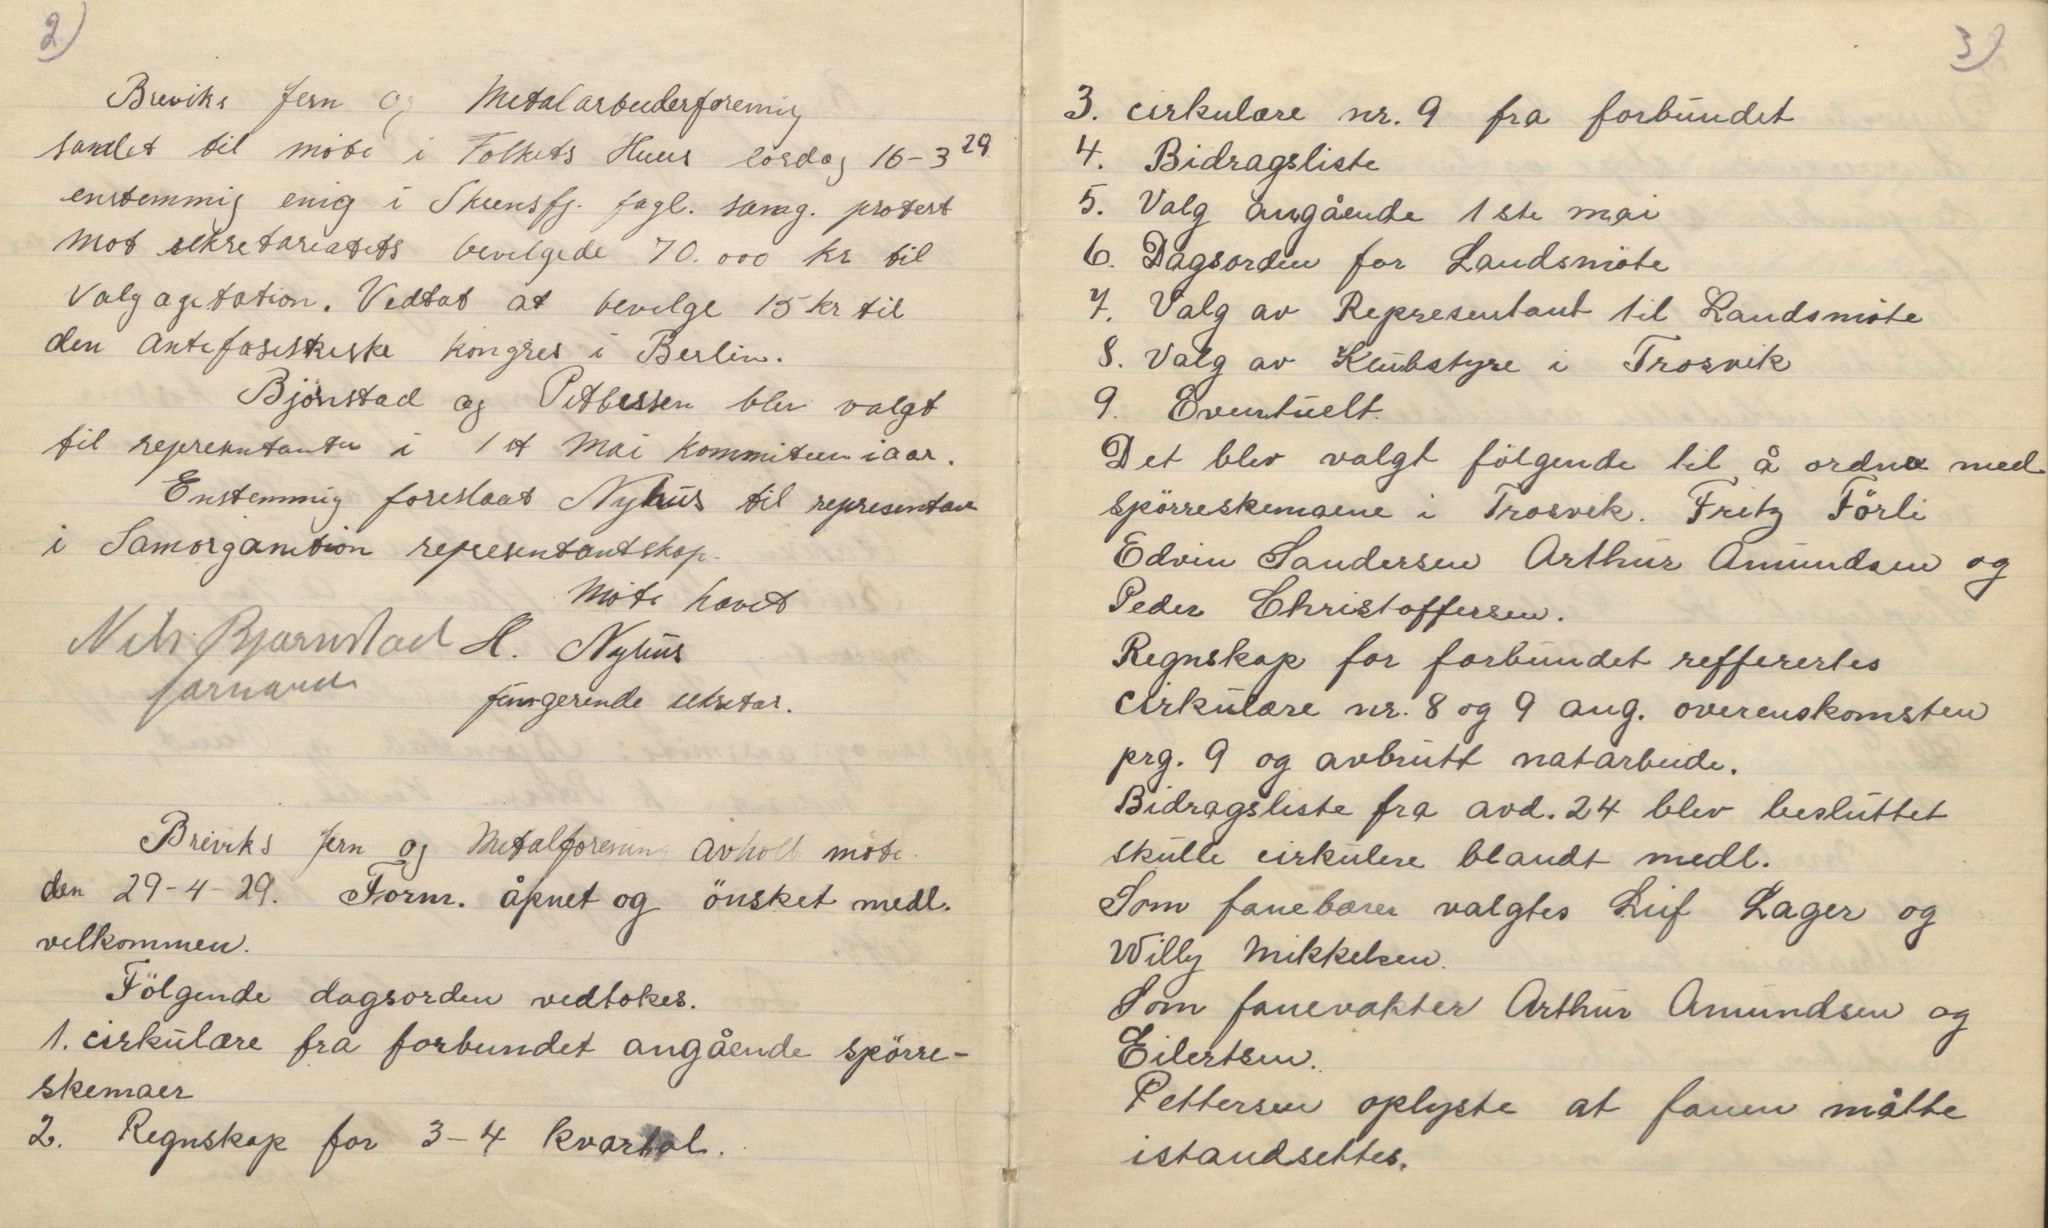 2)
Breviks Jern og Metalarbeiderforening
samlet til möte i Folkets Huus lördag 16-3 29
enstemmig enig i Skiensfj. fagl. samg. protest
mot sekretariatets bevilgede 70.000 kr til
valgagitation. Vedtat at bevilge 15 kr til
den Antifasistiske kongres i Berlin.
Björnstad og Petersen blev valgt
til representanter i 1st Mai Kommiteen iaar.
Enstemmig foreslaat Nyhus til representant
i Samorganition representantskap.
Möte hævet
Nils Bjørnstad H. Nyhus
formand fungerende sekretær.
Breviks Jern og Metalforening avholt möte
den 29-4-29. Form. åpnet og önsket medl.
velkommen.
Fölgende dagsorden vedtokes.
1. cirkulære fra forbundet angående spörre-
skemaer
2. Regnskap for 3-4 kvartal.
3)
3. cirkulære nr. 9 fra forbundet
4. Bidragsliste
5. Valg angående 1ste mai
6. Dagsorden for Landsmöte
7. Valg av Representant til Landsmöte
8. Valg av Klubstyre i Trosvik
9. Eventuelt.
Det blev valgt fölgende til å ordne med
spörreskemaene i Trosvik. Fritz Förli
Edvin Sandersen Arthur Amundsen og
Peder Christoffersen.
Regnskap for forbundet refferertes
cirkulære nr. 8 og 9 ang. overenskomsten
prg. 9 og avbrutt natarbeide.
Bidragsliste fra avd. 24 blev besluttet
skulle cirkulere blandt medl.
Som fanebærer valgtes Leif Lager og
Willy Mikkelsen.
Som fanevakter Arthur Amundsen og
Eilertsen.
Pettersen oplyste at fanen måtte
istandsettes.